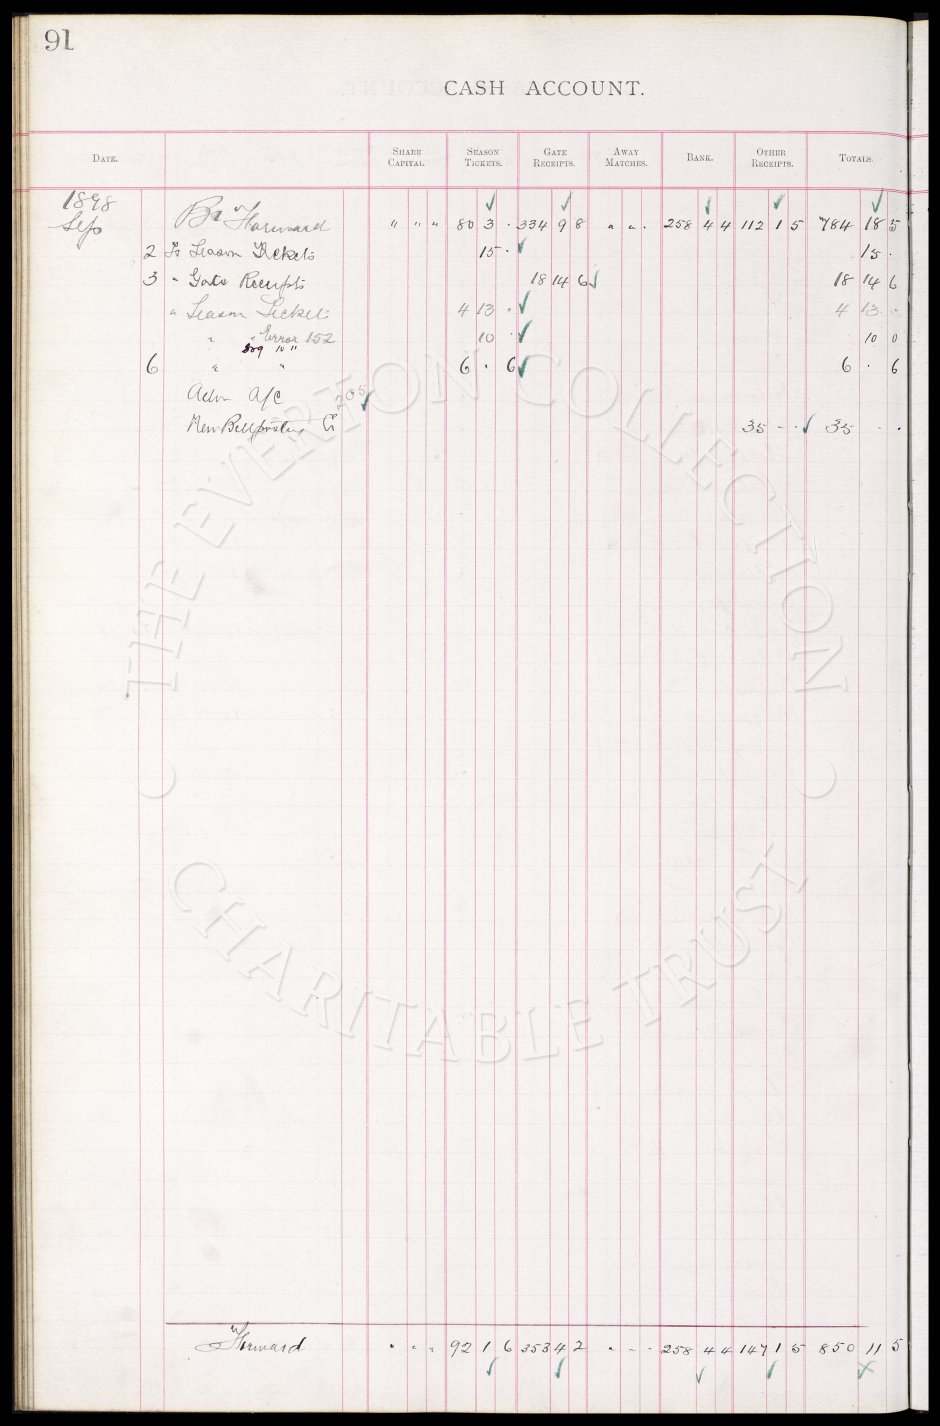 91
CASH ACCOUNT.
DATE. SHARE CAPITAL. SEASON TICKETS. GATE RECEIPTS. AWAY MATCHES. BANK. OTHER RECEIPTS. TOTALS.
1898
Sep Bt Forward " " " 80 3 . 334 9 8 " " . 258 4 4 112 1 5 784 18 5
2 To Season Tickets 15 . 15 .
3 " Gate Receipts 18 14 6 18 14 6
" Season Tickets 4 13 . 4 13 .
" " Error 152 10 . 10 0
10 "
6 " " 6 . 6 6 . 6
A/C 205
New Billposting Co 35 - . 35 - .
Forward " " " 92 1 6 353 4 2 " - . 258 4 4 147 1 5 850 11 5
THE EVERTON COLLECTION
CHARITABLE TRUST